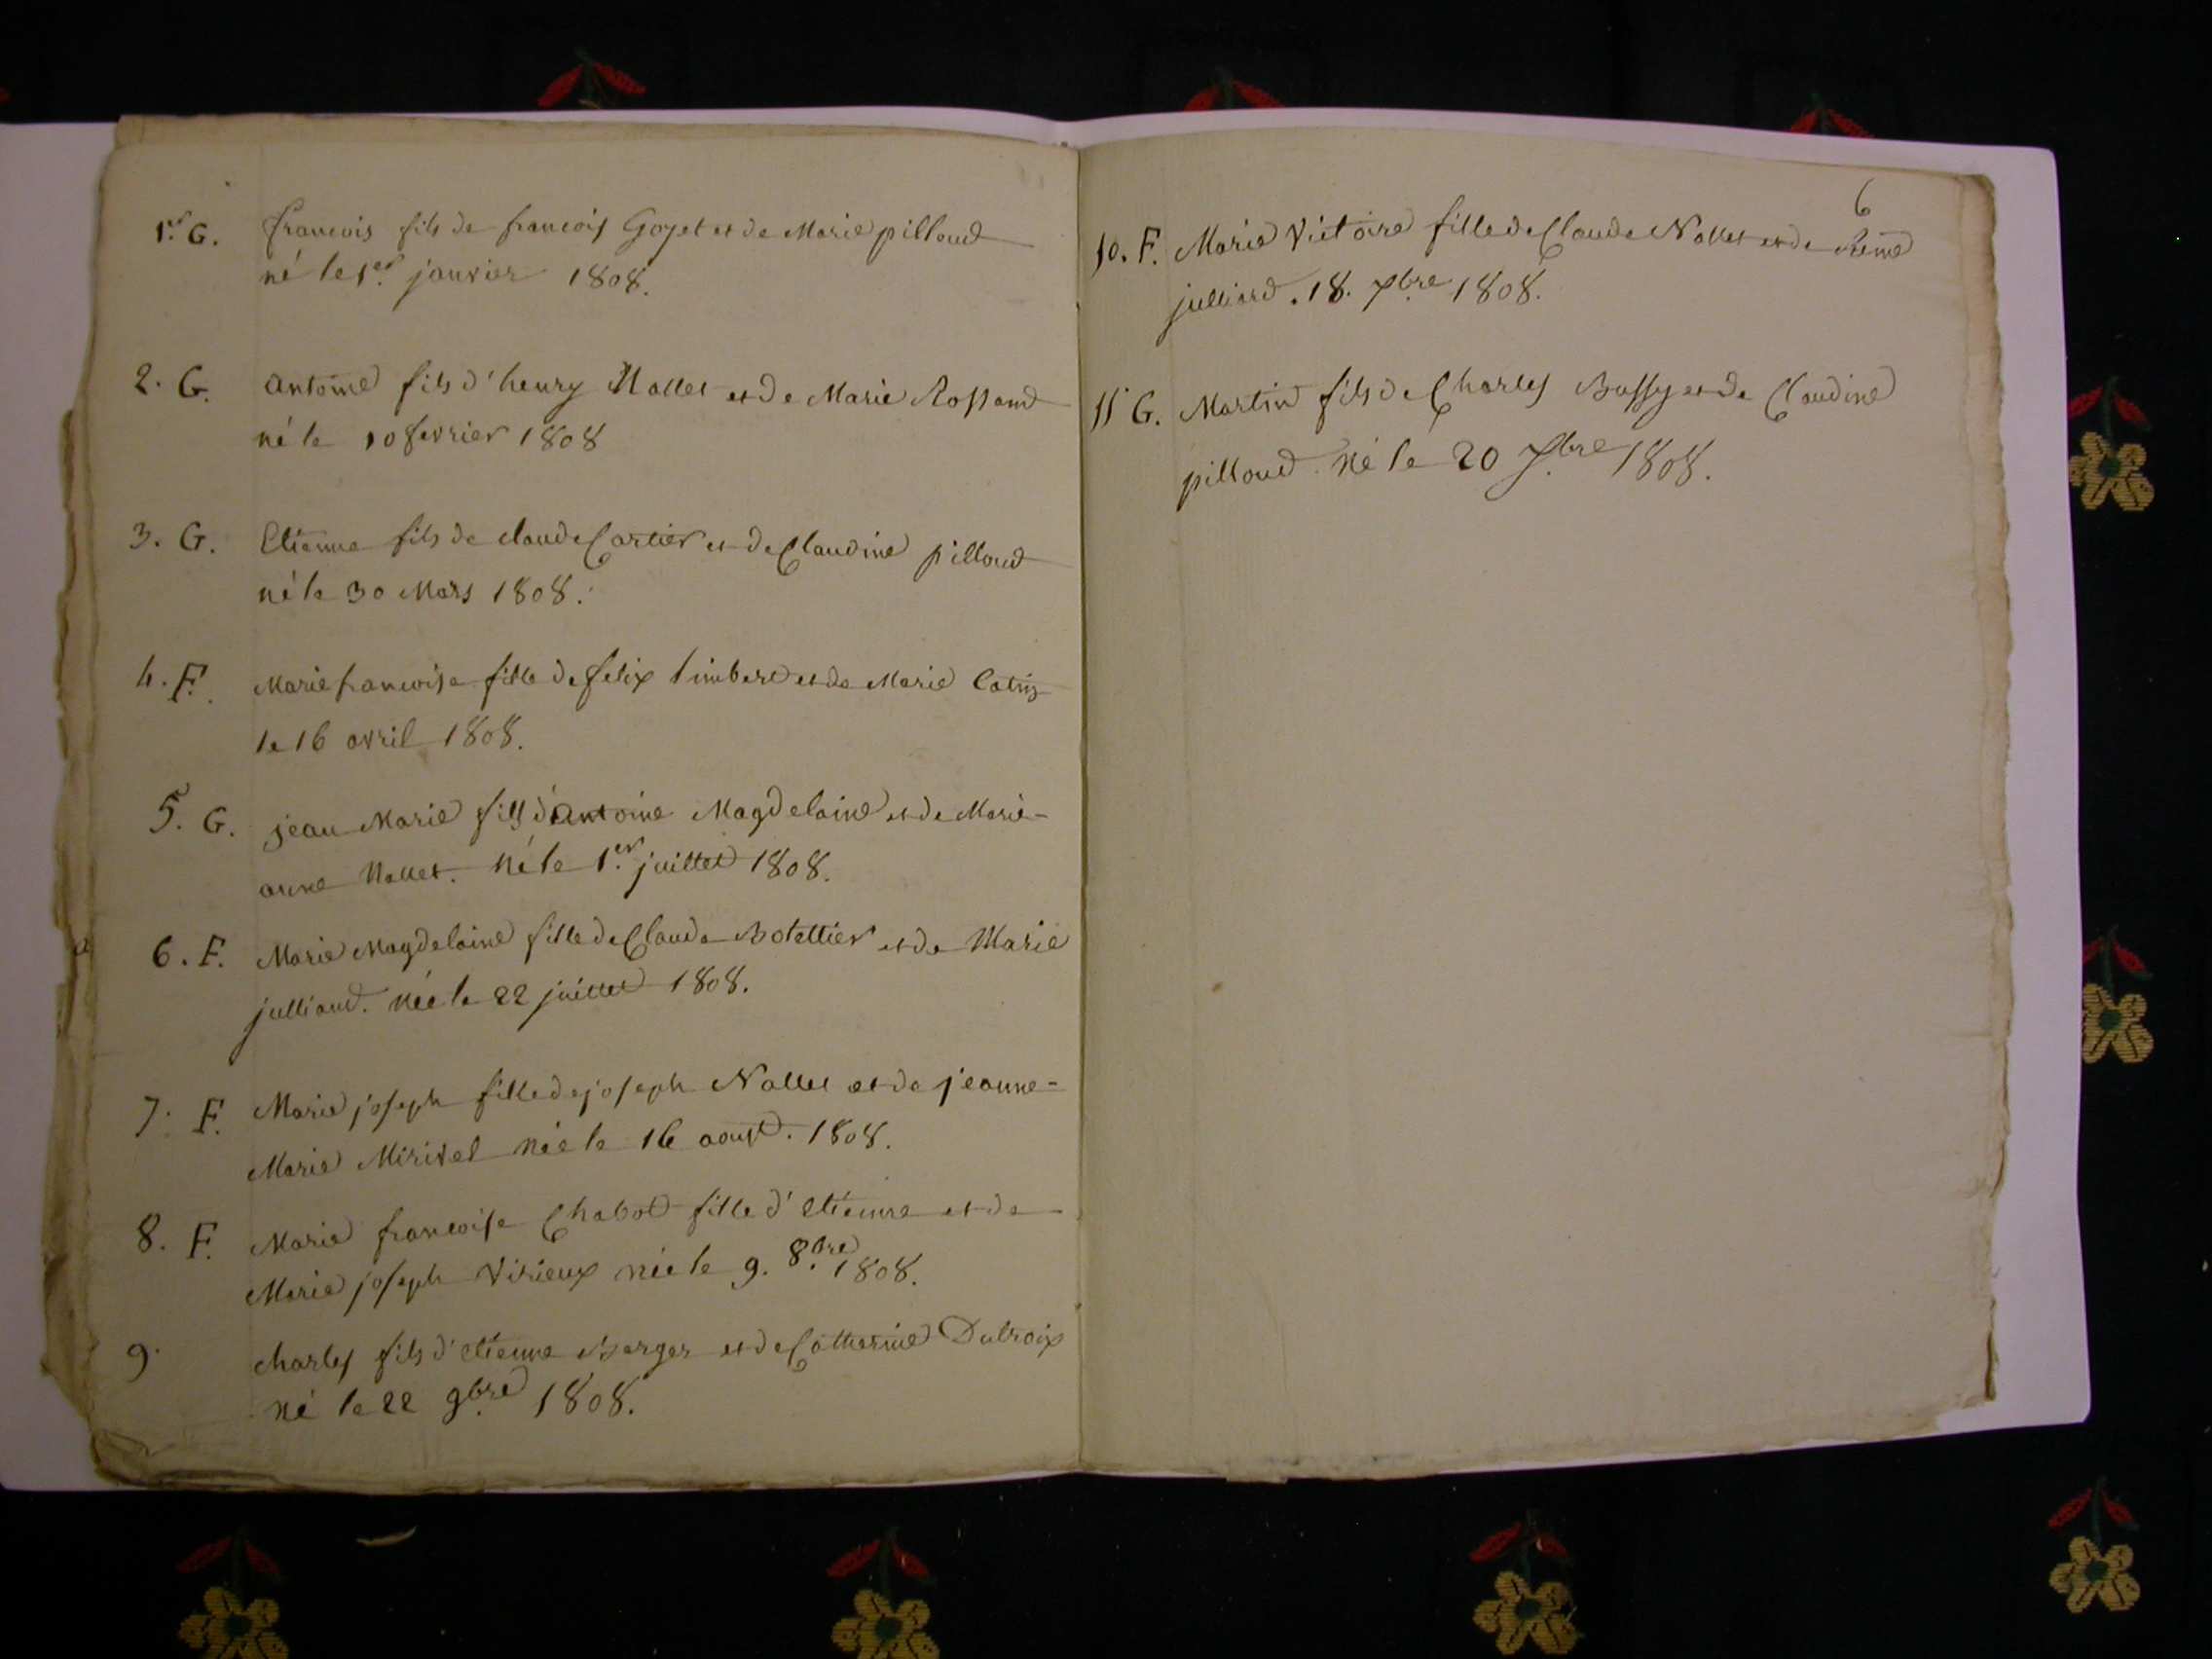 1.er G. francois fils de francois Goyet et de Marie pilloud
né le 1.er janvier 1808.
2. G. antoine fils d'henry Nallet et de Marie Rossand
né le 10 fevrier 1808
3. G. Etienne fils de claude Cartier et de Claudine pilloud
né le 30 Mars 1808.
4. F. Marie francoise fille de felix Limbert et de Marie
le 16 avril 1808.
5. G. jean Marie fils d'antoine Magdelaine et de Marie-
anne Nallet. né le 1.er juillet 1808.
6. F. Marie Magdelaine fille de Claude Botettier et de Marie
julliard. née le 22 juillet 1808.
7. F. Marie joseph fille de joseph Nallet et de jeanne-
Marie Mirivel née le 16 aoust. 1808.
8. F. Marie francoise Chabot fille d'etienne et de
Marie joseph Virieux née le 9. 8.bre 1808.
9. charles fils d'etienne Berger et de Catherine Dulroix
né le 22 9.bre 1808.
6
10. F. Marie Victoire fille de Claude Nallet et de
julliard. 18. xbre 1808.
11 G. Martin fils de Charles Bussy et de Claudine
pilloud. né le 20 1808.